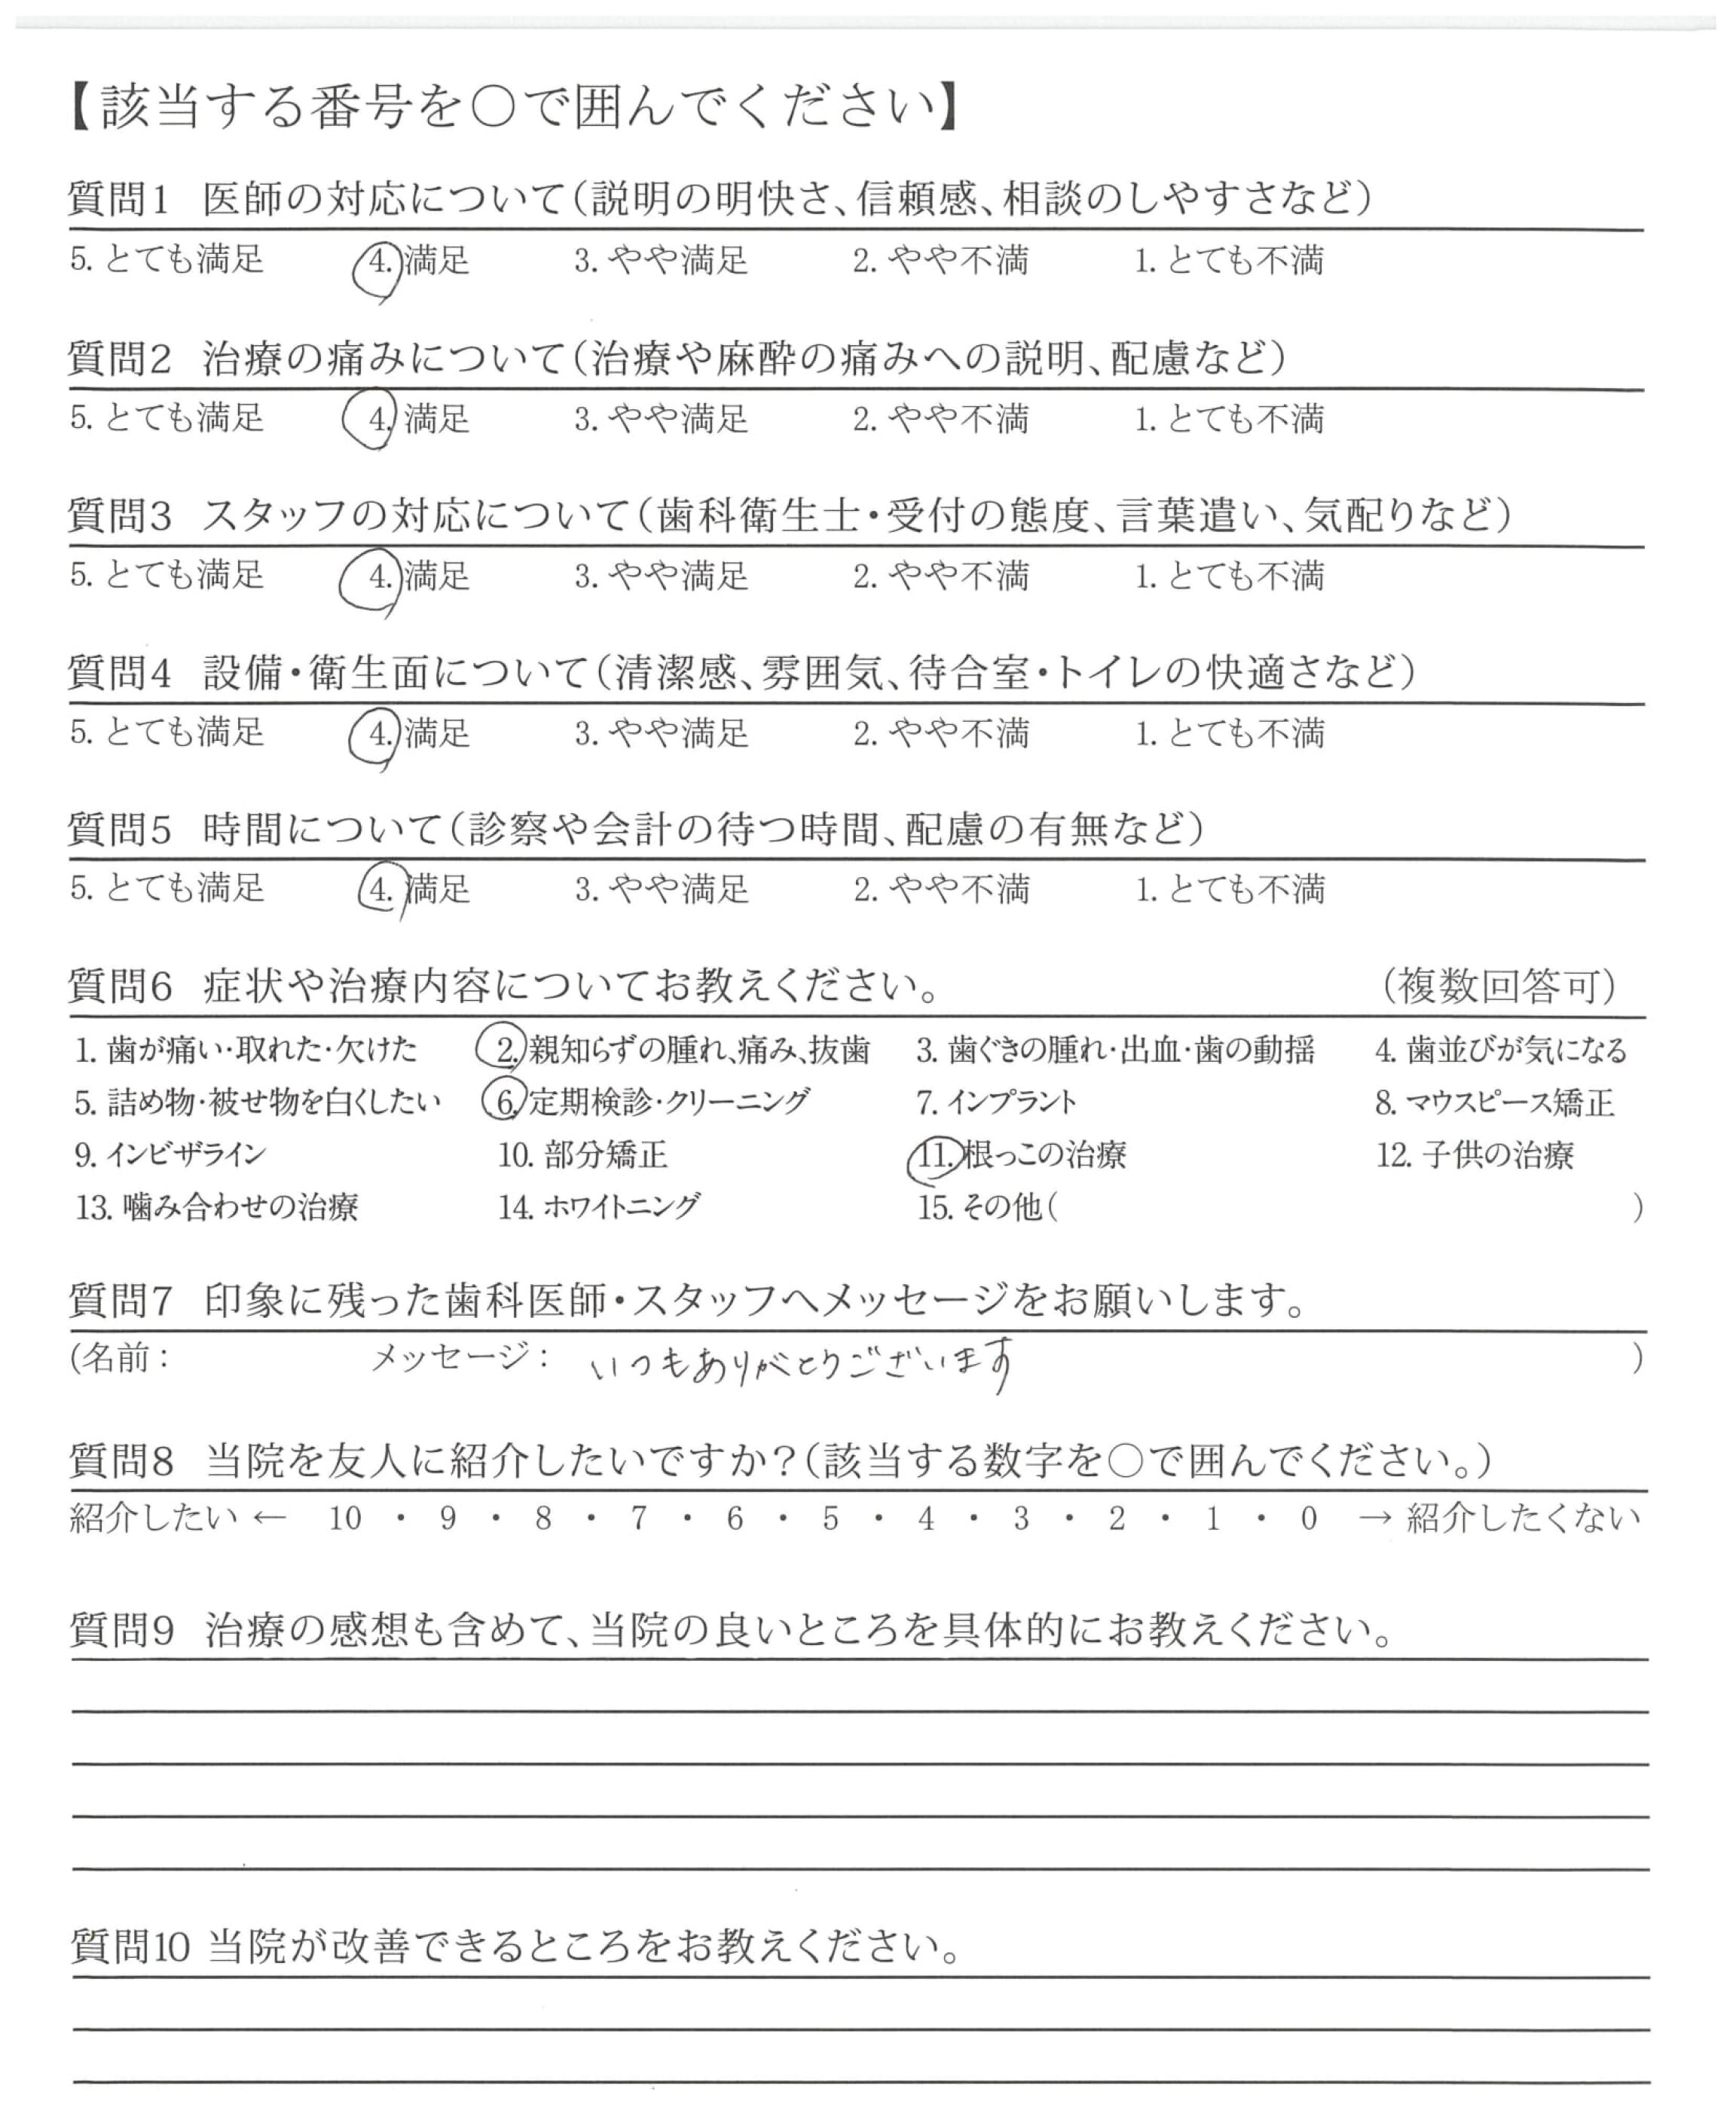 【該当する番号を○で囲んでください】
質問1 医師の対応について(説明の明快さ、信頼感、相談のしやすさなど)
5. とても満足 4. 満足 3. やや満足 2. やや不満 1. とても不満
質問2 治療の痛みについて(治療や麻酔の痛みへの説明、配慮など)
5. とても満足 4. 満足 3. やや満足 2. やや不満 1. とても不満
質問3 スタッフの対応について(歯科衛生士・受付の態度、言葉遣い、気配りなど)
5. とても満足 4. 満足 3. やや満足 2. やや不満 1. とても不満
質問4 設備・衛生面について(清潔感、雰囲気、待合室・トイレの快適さなど)
5. とても満足 4. 満足 3. やや満足 2. やや不満 1. とても不満
質問5 時間について(診察や会計の待つ時間、配慮の有無など)
5. とても満足 4. 満足 3. やや満足 2. やや不満 1. とても不満
質問6 症状や治療内容についてお教えください。 (複数回答可)
1. 歯が痛い・取れた・欠けた 2. 親知らずの腫れ、痛み、抜歯 3. 歯ぐきの腫れ・出血・歯の動揺 4. 歯並びが気になる
5. 詰め物・被せ物を白くしたい 6. 定期検診・クリーニング 7. インプラント 8. マウスピース矯正
9. インビザライン 10. 部分矯正 11. 根っこの治療 12. 子供の治療
13. 噛み合わせの治療 14. ホワイトニング 15. その他( )
質問7 印象に残った歯科医師・スタッフへメッセージをお願いします。
(名前: メッセージ: いつもありがとうございます )
質問8 当院を友人に紹介したいですか?(該当する数字を○で囲んでください。)
紹介したい ← 10 ・ 9 ・ 8 ・ 7 ・ 6 ・ 5 ・ 4 ・ 3 ・ 2 ・ 1 ・ 0 → 紹介したくない
質問9 治療の感想も含めて、当院の良いところを具体的にお教えください。
質問10 当院が改善できるところをお教えください。